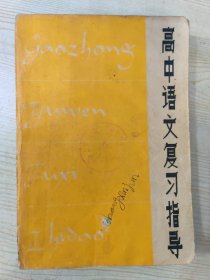 高中语文复习指导
Gaozhong
Yuwen
Fuxi
Zhidao